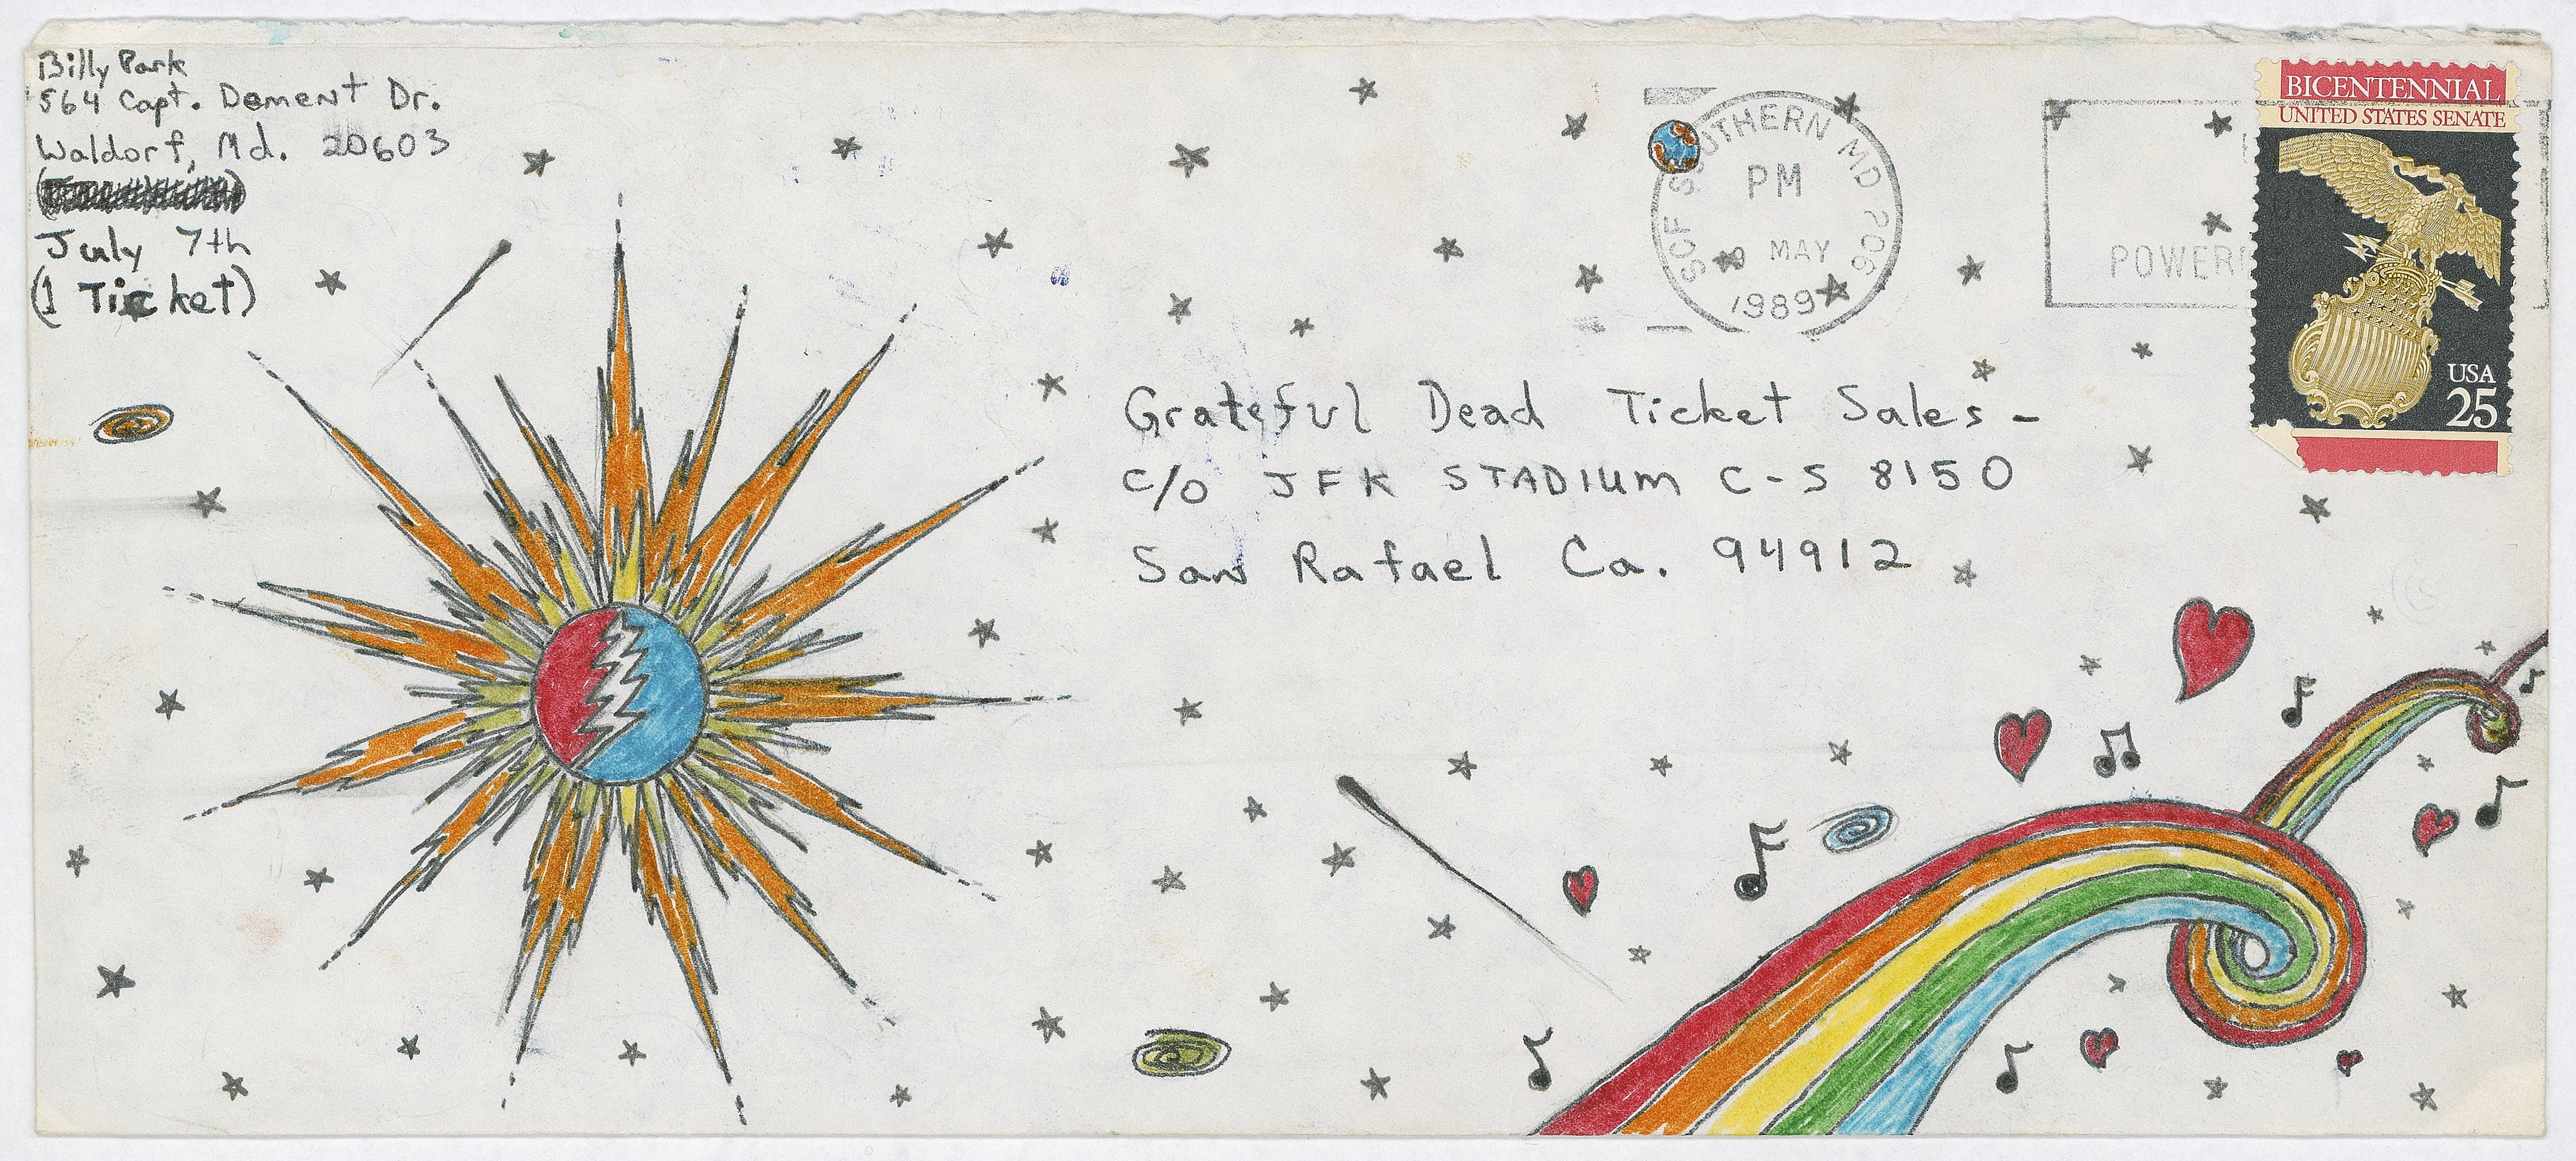 Billy Park
564 Capt. Dement Dr.
Waldorf, Md. 20603
July 7th
(1 Ticket)
SCF SOUTHERN MD 206
PM
MAY
1989
POWER
BICENTENNIAL
UNITED STATES SENATE
USA
25
Grateful Dead Ticket Sales -
c/o JFK STADIUM C-S 8150
San Rafael Ca. 94912